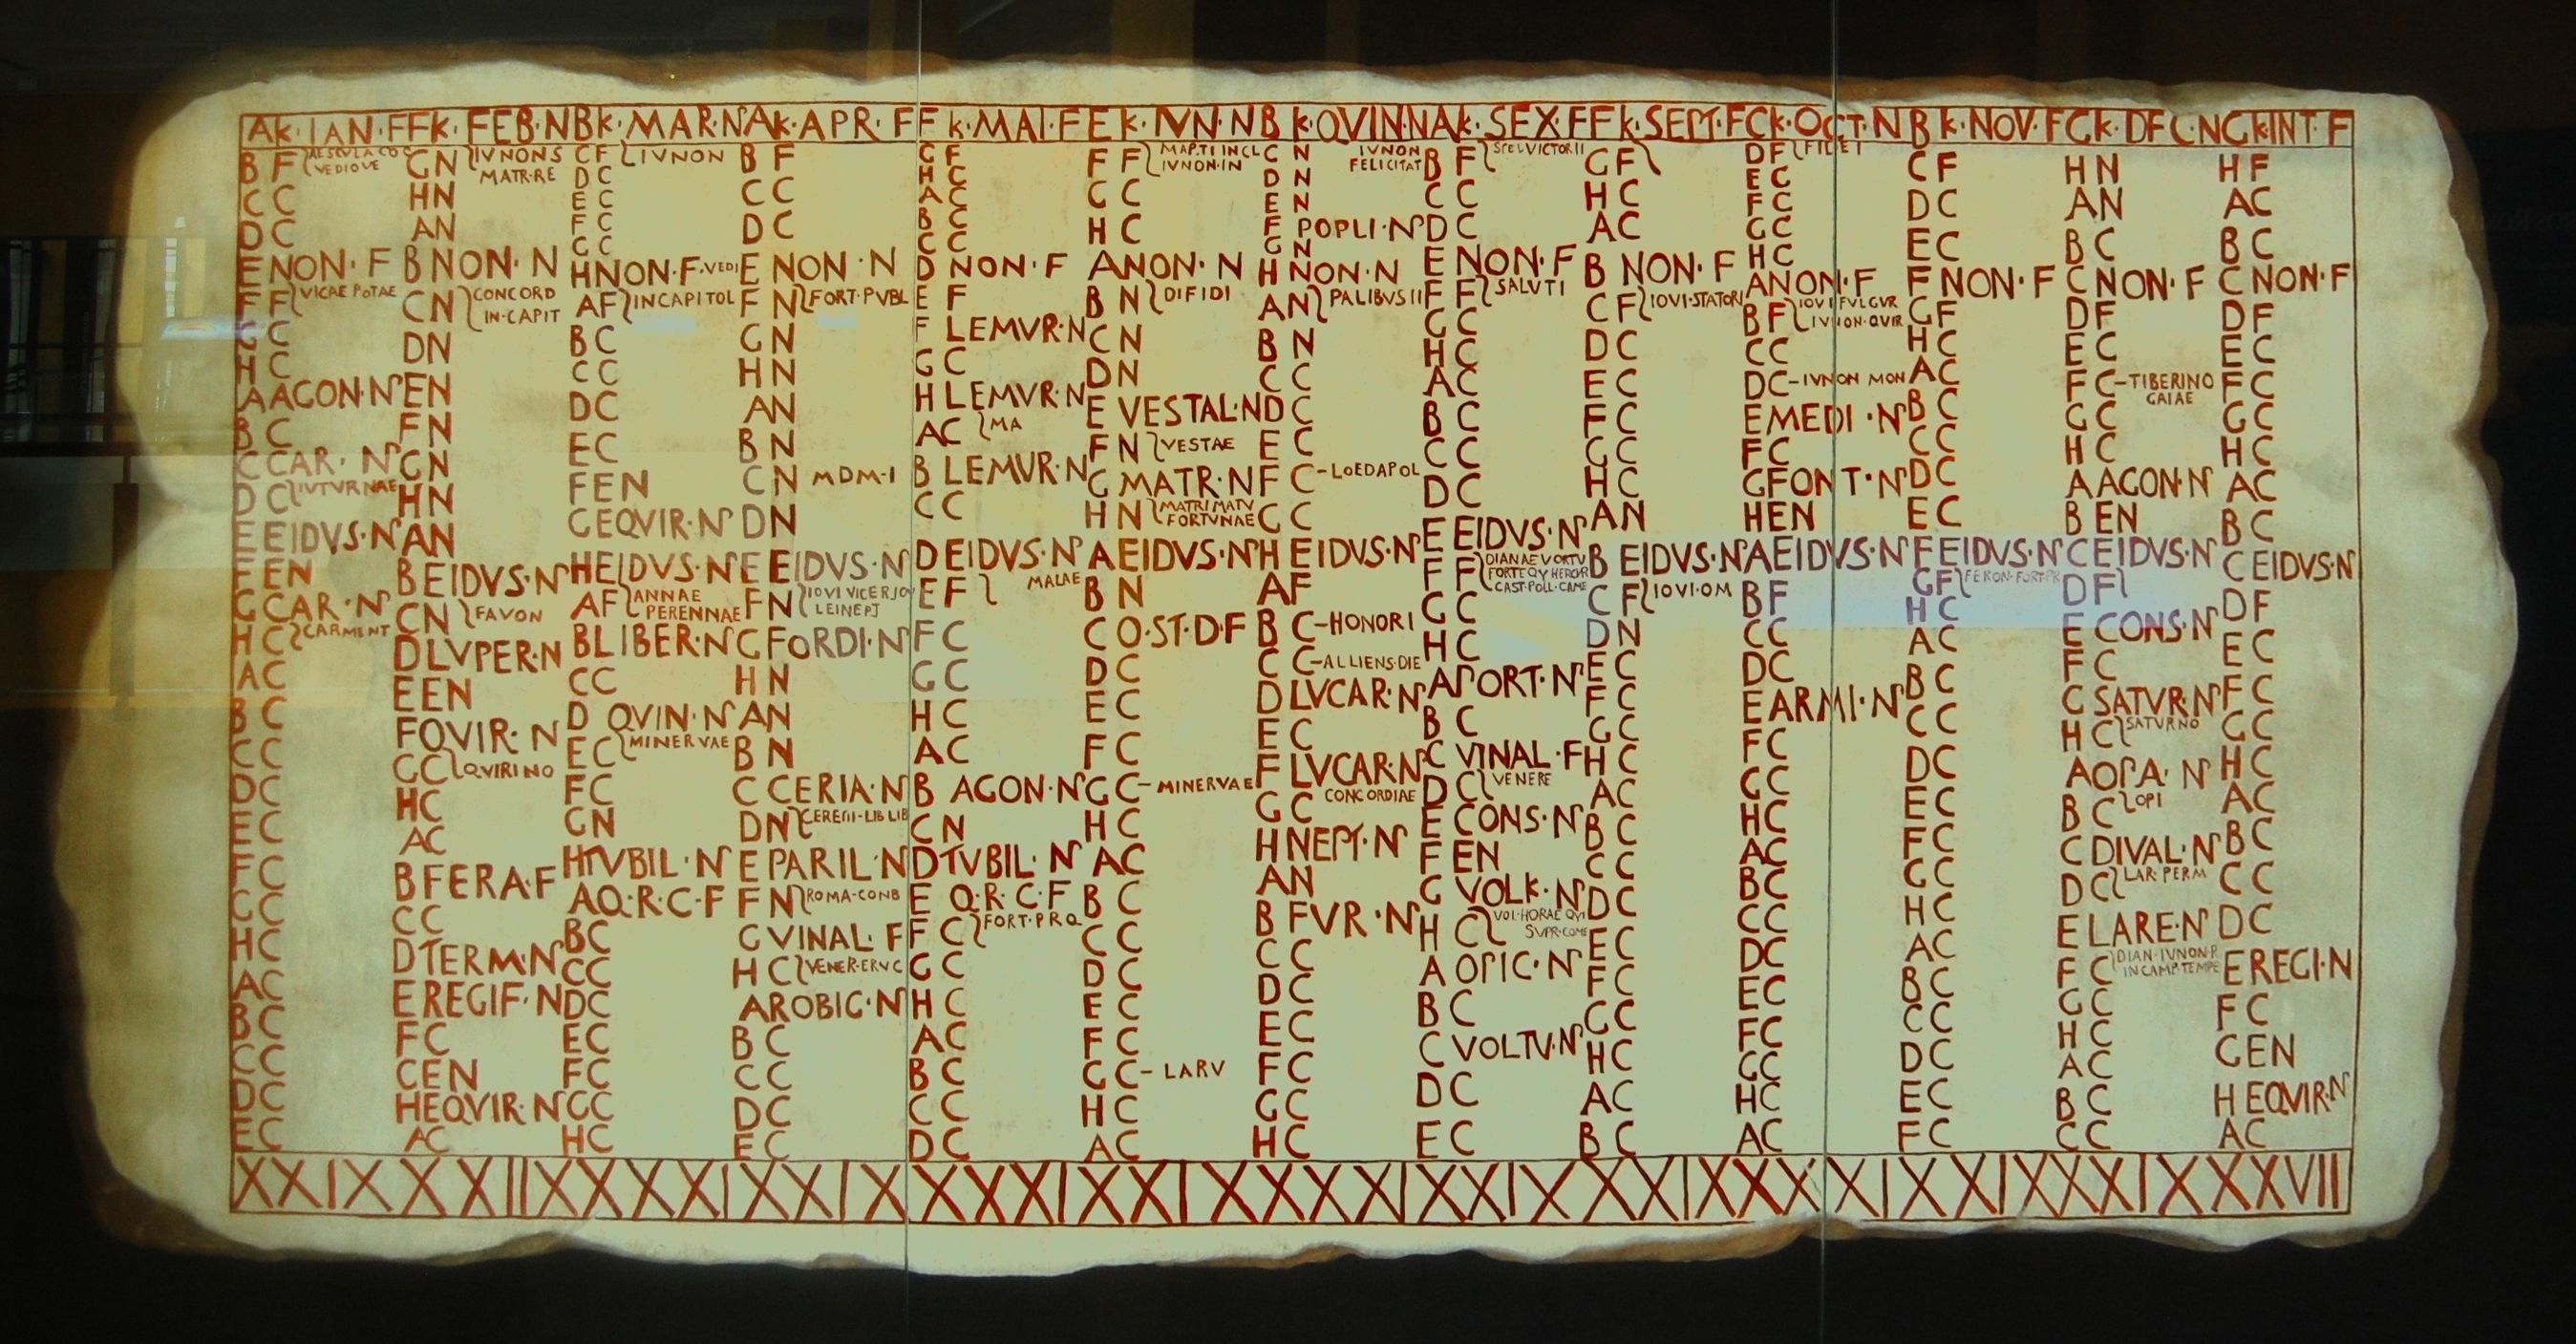 AK·IAN·F FK·FEB·N BK·MAR·N AK·APR·F FK·MAI·F EK·IVN·N BK·QVIN·N AK·SEX·F FK·SEPT·F CK·OCT·N BK·NOV·F GK·DEC·N GK·INT·F
B F AESCVLA CO
VEDIOVE
C C
D C
E NON·F
F F VICAE POTAE
G C
H C
A AGON·N
B C
C CAR·N
D C IVTVRNAE
E EIDVS·N
F EN
G CAR·N
H C CARMENT
A C
B C
C C
D C
E C
F C
G C
H C
A C
B C
C C
D C
E C
G N IVNONS
MATR·RE
H N
A N
B NON·N
C N CONCORD
IN·CAPIT
D N
E N
F N
G N
H N
A N
B EIDVS·N
C N FAVON
D LVPER·N
E EN
F QVIR·N
G C QVIRINO
H C
A C
B FERA·F
C C
D TERM·N
E REGIF·N
F C
G EN
H EQVIR·N
A C
C F IVNON
D C
E C
F C
G C
H NON·F·VEDI
A F INCAPITOL
B C
C C
D C
E C
F EN
G EQVIR·N
H EIDVS·N
A F ANNAE
PERENNAE
B LIBER·N
C C
D QVIN·N
E C MINERVAE
F C
G N
H TVBIL·N
A Q·R·C·F
B C
C C
D C
E C
F C
G C
H C
B F
C C
D C
E NON·N
F N FORT·PVBL
G N
H N
A N
B N
C N MDM·I
D N
E EIDVS·N
F N IOVI VICERIO
LEINEPI
G FORDI·N
H N
A N
B N
C CERIA·N
D N CERERII-LIB LIB
E PARIL·N
F N ROMA-CONB
G VINAL·F
H C VENER·ERVC
A ROBIG·N
B C
C C
D C
E C
G F
H C
A C
B C
C C
D NON·F
E F
F LEMVR·N
G C
H LEMVR·N
A C MA
B LEMVR·N
C C
D EIDVS·N
E F MALAE
F C
G C
H C
A C
B AGON·N
C N
D TVBIL·N
E Q·R·C·F
F C FORT·PRQ
G C
H C
A C
B C
C C
D C
F F MAP·TI INCL
IVNON·IN
G C
H C
A NON·N
B N DIFIDI
C N
D N
E VESTAL·N
F N VESTAE
G MATR·N
H N MATRI MATV
FORTVNAE
A EIDVS·N
B N
C Q·ST·D·F
D C
E C
F C
G C-MINERVAE
H C
A C
B C
C C
D C
E C
F C
G C-LARV
H C
A C
C N IVNON
FELICITAT
D N
E N
F POPLI·N
G N
H NON·N
A N PALIBVSII
B N
C C
D C
E C
F C-LOEDAPOL
G C
H EIDVS·N
A F
B C-HONORI
C C-ALLIENS·DIE
D LVCAR·N
E C
F LVCAR·N
G C CONCORDIAE
H NEPT·N
A N
B FVR·N
C C
D C
E C
F C
G C
H C
B F SPEI VICTORII
C C
D C
E NON·F
F F SALVTI
G C
H C
A C
B C
C C
D C
E EIDVS·N
F F DIANAE VORTV
FORTEQV HERCVR
CAST·POLL·CAME
G C
H C
A PORT·N
B C
C VINAL·F
D C VENERE
E CONS·N
F EN
G VOLK·N
H C VOL·HORAE QVI
SVPR·COME
A OPIC·N
B C
C VOLTV·N
D C
E C
G F
H C
A C
B NON·F
C F IOVI·STATORI
D C
E C
F C
G C
H C
A N
B EIDVS·N
C F IOVI·OM
D N
E C
F C
G C
H C
A C
B C
C C
D C
E C
F C
G C
H C
A C
B C
D F FIDEI
E C
F C
G C
H C
A NON·F
B F IOVI FVLGVR
IVNON·QVIR
C C
D C-IVNON MON
E MEDI·N
F C
G FONT·N
H EN
A EIDVS·N
B F
C C
D C
E ARMI·N
F C
G C
H C
A C
B C
C C
D C
E C
F C
G C
H C
A C
C F
D C
E C
F NON·F
G F
H C
A C
B C
C C
D C
E C
F EIDVS·N
G F FERON·FORT·PR
H C
A C
B C
C C
D C
E C
F C
G C
H C
A C
B C
C C
D C
E C
F C
H N
A N
B C
C NON·F
D F
E C
F C-TIBERINO
GAIAE
G C
H C
A AGON·N
B EN
C EIDVS·N
D F
E CONS·N
F C
G SATVR·N
H C SATVRNO
A OPA·N
B C OPI
C DIVAL·N
D C LAR·PERM
E LARE·N
F C DIAN·IVNON·R
IN CAMP·TEMPE
G C
H C
A C
B C
C C
H F
A C
B C
C NON·F
D F
E C
F C
G C
H C
A C
B C
C EIDVS·N
D F
E C
F C
G C
H C
A C
B C
C C
D C
E REGI·N
F C
G EN
H EQVIR·N
A C
XXIX XXIIX XXXI XXIX XXXI XXIX XXXI XXIX XXIX XXXI XXIX XXIX XXVII